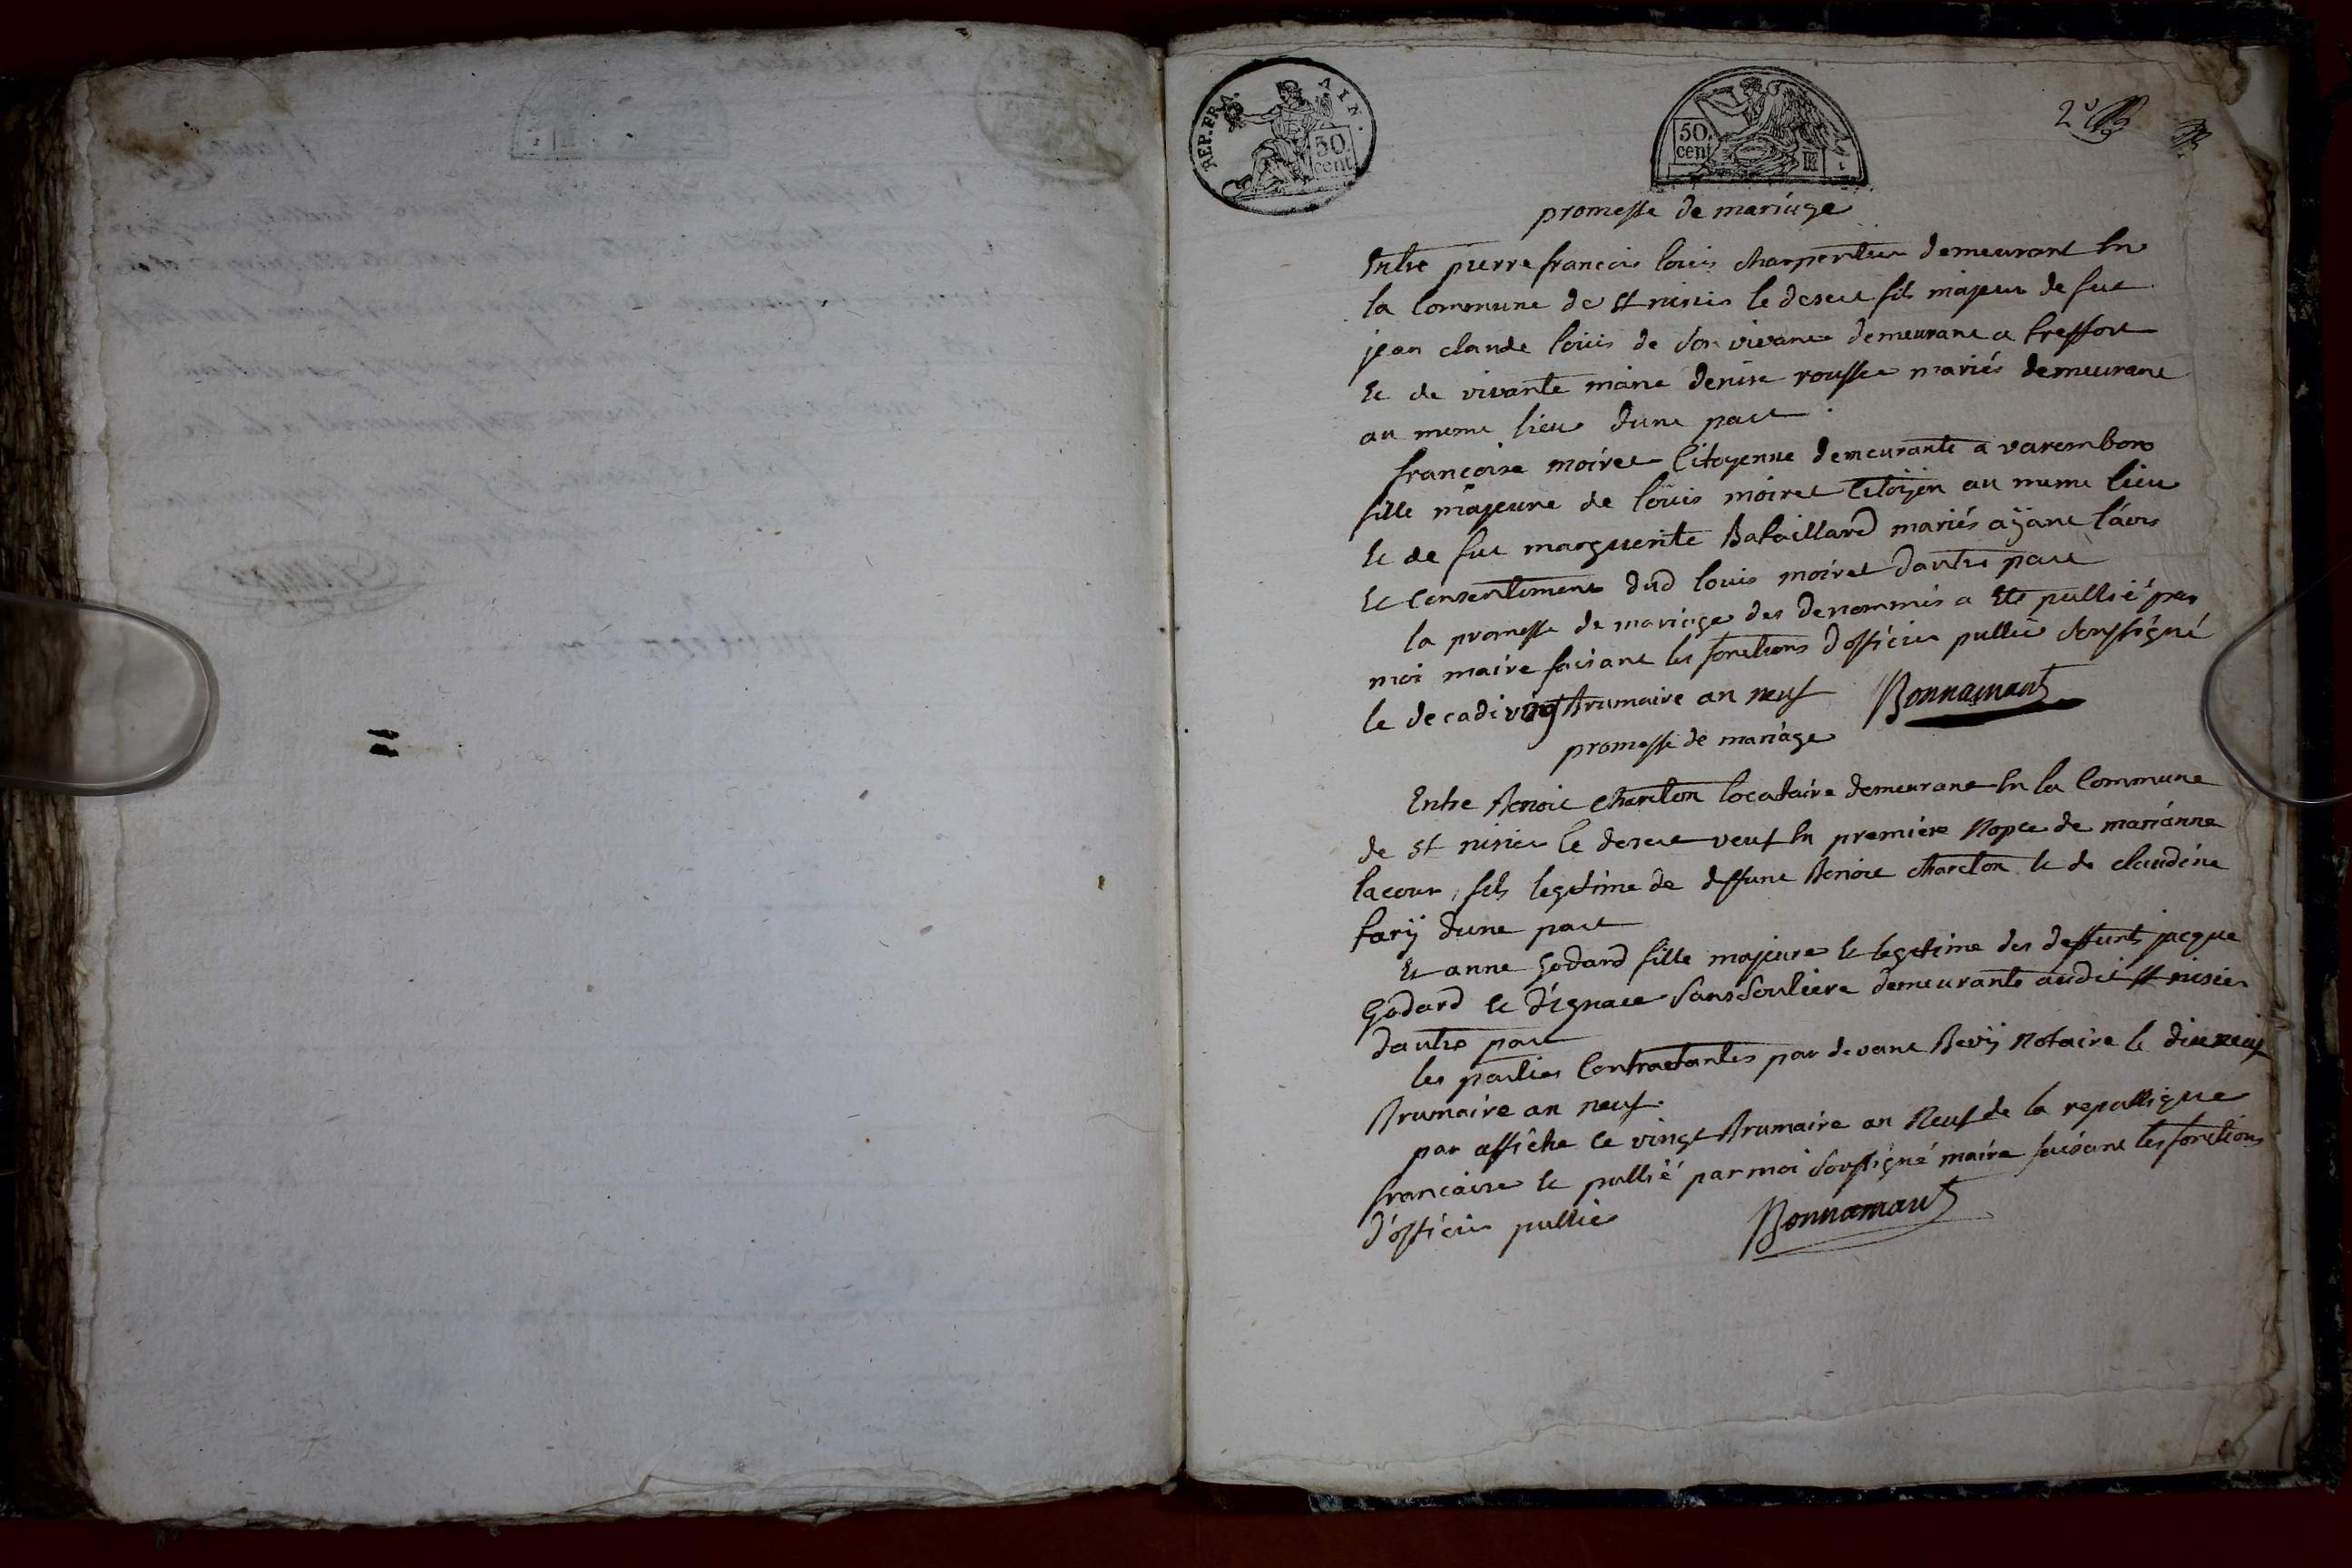 REP. FRA. AIN.
50. cent
50. cent
2e
promesse de mariage
Entre pierre francois louis charpentier demeurant En
la Commune de St nisier le desert fils majeur de fut
jean claude louis de son vivant demeurant a treffort
Et de vivante marie denise rousset mariés demeurant
au meme lieu dune part
francoise moiret Citoyenne demeurante a varembon
fille majeure de louis moiret Citoyen au meme lieu
Et de fut marguerite Bataillard mariés aÿant l'avis
Et Consentement dud louis moiret d'autre part
la promesse de mariage des denommés a Eté pullié par
moi maire faisant les fonctions d'officier pullic soussigné
le decadi vingt Brumaire an neuf Bonnamant
promesse de mariage
Entre Benoit charelon locataire demeurant En la Commune
de St nisier le desert veuf En premiere Nopce de marianne
lacour, fils legitime de deffunt Benoit charelon Et de claudine
farÿ dune part
Et anne Godard fille majeure Et legitime des deffunts jacque
Godard Et d'ignace Sanssouliere demeurante audit St nisier
dautre part
les parties Contractantes par devant Bevÿ Notaire le dix neuf
Brumaire an neuf.
par affiche le vingt Brumaire an Neuf de la republique
francaise Et pullié par moi soussigné maire faisant les fonctions
d'officier pullic Bonnamant